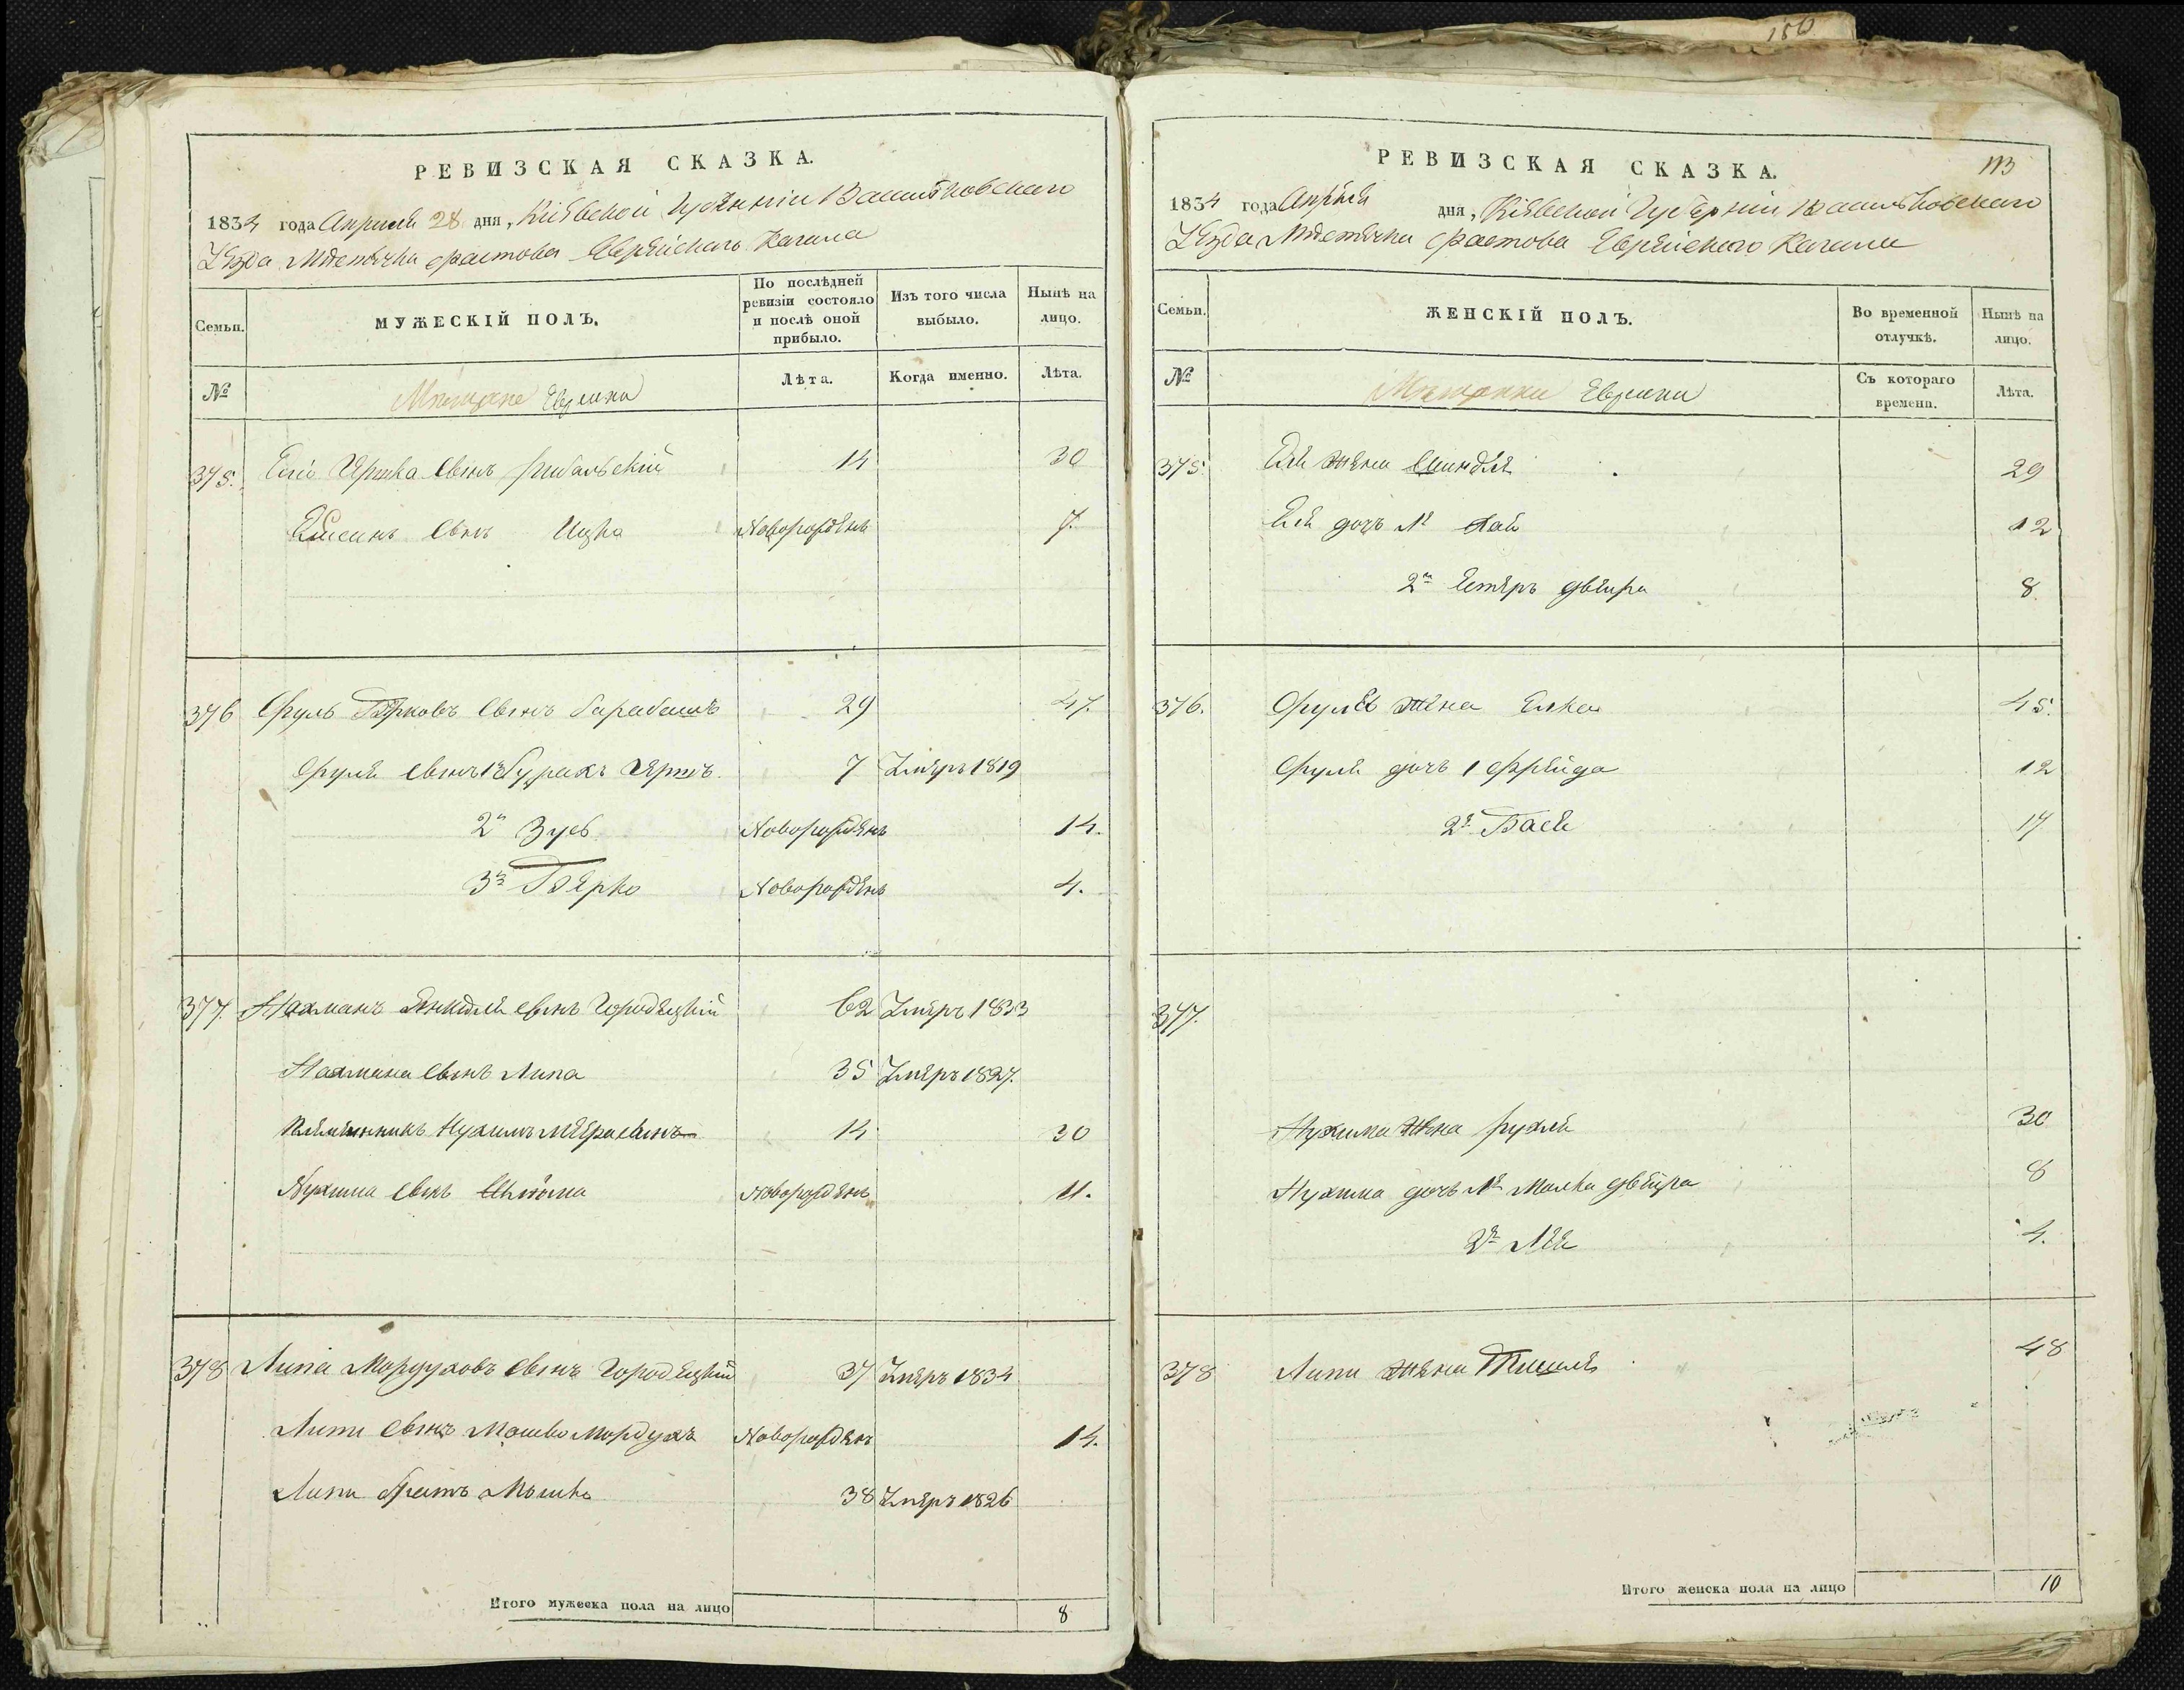 150
РЕВИЗСКАЯ СКАЗКА.
1834 года Апреля 28 дня, Кіевской Губерніи Васильковскаго
Уѣзда Мѣстечка Фастова Еврейскаго Кагала
Семьи.
МУЖЕСКІЙ ПОЛЪ.
По послѣдней ревизіи состояло и послѣ оной прибыло.
Изъ того числа выбыло.
Нынѣ на лицо.
№
Мѣщане Евреи
Лѣта.
Когда именно.
Лѣта.
375. сынъ 14 30
сынъ Ицка Новорожденъ 7.
376 Сруль Берковъ сынъ Барабашъ 29 47.
Сруля сынъ 1й Гершъ 7 Умеръ 1819
2й Зусь Новорожденъ 14.
3й Берко Новорожденъ 4.
377. Нахманъ сынъ Городецкій 62 Умеръ 1833
Нахмана сынъ Липа 35 Умеръ 1827.
Племянникъ Нухимъ Меера сынъ 14 30
Нухима сынъ Шлёма Новорожденъ 11.
378 Липа Мордуховъ сынъ Городецкій 37 Умеръ 1834
Липи сынъ Мошко Мордухъ Новорожденъ 14.
Липи братъ Мошко 38 Умеръ 1826
Итого мужеска пола на лицо 8
РЕВИЗСКАЯ СКАЗКА.
113
1834 года Апреля дня, Кіевской Губерніи Васильковскаго
Уѣзда Мѣстечка Фастова Еврейскаго Кагала
Семьи.
ЖЕНСКІЙ ПОЛЪ.
Во временной отлучкѣ.
Нынѣ на лицо.
№
Мѣщанки Евреи
Съ котораго времени.
Лѣта.
375. жена Шиндля 29
дочь 12
2я Естеръ Двейра 8.
376. Сруля жена Елка 45.
Сруля дочь 1 Фрейда 12
2я Бася 17
377.
Нухима жена Рухля 30
Нухима дочь 1я Малка Двейра 8
2я Лея 4.
378 Липи жена 48
Итого женска пола на лицо 10